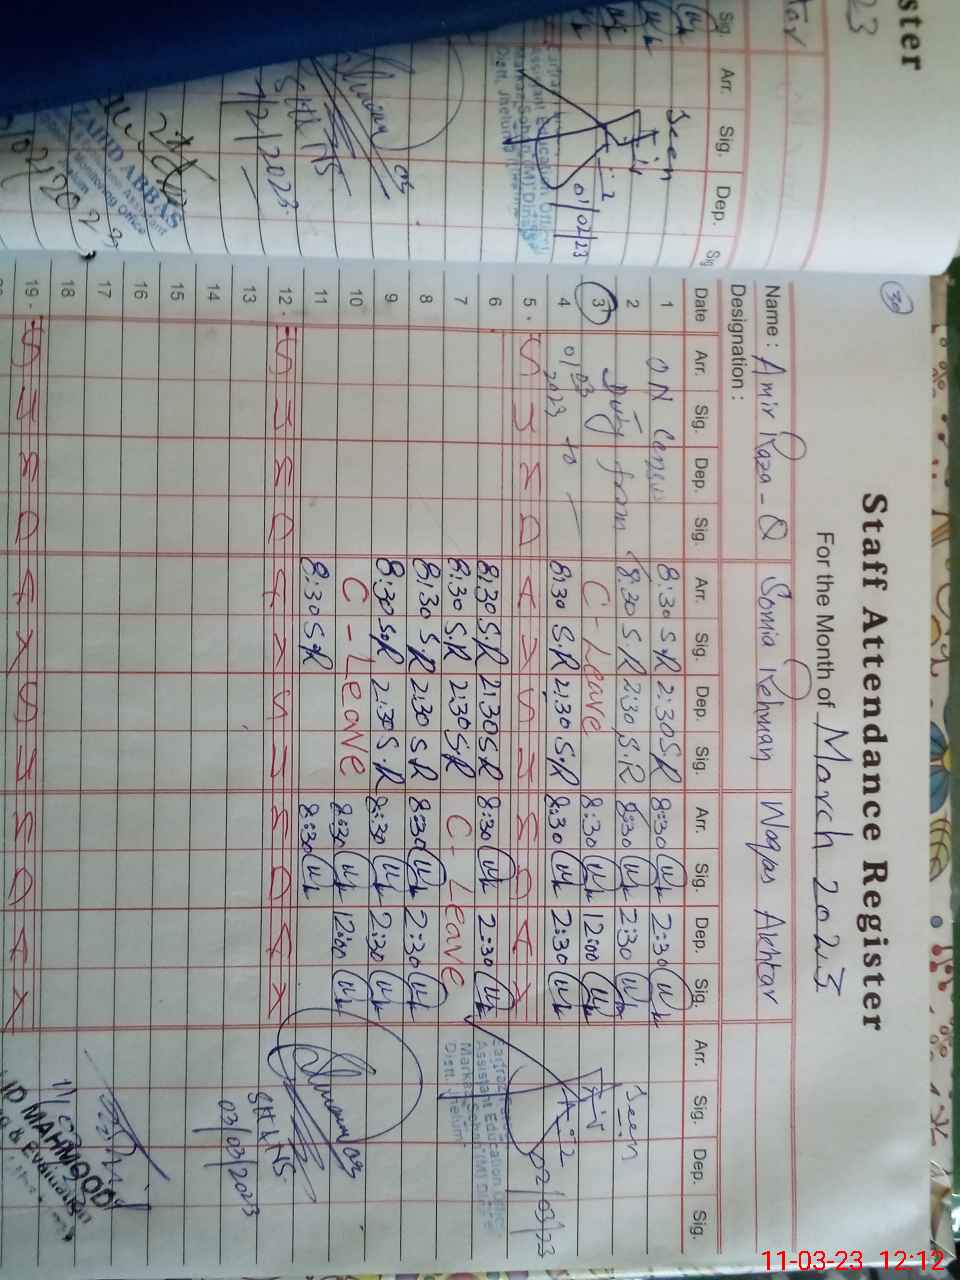 Staff Attendance Register
For the Month of March 2023
30
Name : Amir Raza - Q Somia Rehman Waqas Akhtar
Designation :
Date Arr. Sig. Dep. Sig. Arr. Sig. Dep. Sig. Arr. Sig. Dep. Sig. Arr. Sig. Dep. Sig.
1 ON 8:30 S.R 2:30 S.R 8:30 2:30
2 Duty from 8:30 S.R 2:30 S.R 8:30 2:30 Seen
3 01/03 C - Leave 8:30 12:00
4 2023 to 8:30 S.R 2:30 S.R 8:30 2:30 02/03/23
5 S U N D A Y S U N D A Y
6 8:30 S.R 2:30 S.R 8:30 2:30
7 8:30 S.R 2:30 S.R C - Leave
8 8:30 S.R 2:30 S.R 8:30 2:30
9 8:30 S.R 2:30 S.R 8:30 2:30
10 C - Leave 8:30 12:00
11 8:30 S.R 8:30
12 S U N D A Y S U N D A Y
13
14 03/03/2023
15
16
17
18
19 S U N D A Y S U N D A Y
Assistant Education Officer
Distt. Jhelum
MAHMOOD
& Evaluation
ster
23
Sig. Arr. Sig. Dep. Sig
Seen
01/02/23
Assistant Education Officer
Distt. Jhelum
1/2/2023
ZAHID ABBAS
Monitoring Office
11-03-23 12:12